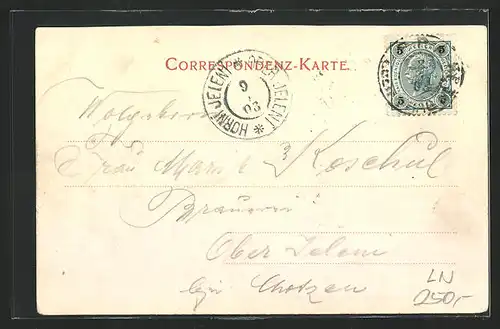 CORRESPONDENZ-KARTE
HORNÍ JELENÍ * OBER-JELENI *
9
03
5 5
5 5
Wohlgeboren
Frau Marie Koschul
Brauerei
Ober Jeleni
bei Chotzen
LN
250,-